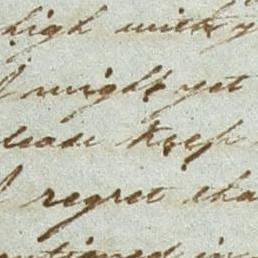 high with y
I might yet
lease keep
I regret tha
entioned in